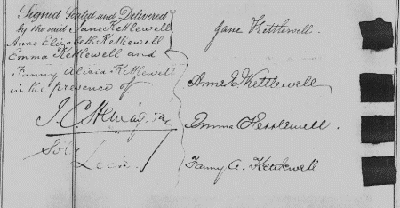 Signed Sealed and Delivered
by the said Jane Kettlewell
Anne Elizabeth Kettlewell
Emma Kettlewell and
Fanny Alicia Kettlewell
in the presence of
Jane Kettlewell.
Anne E Kettlewell
Emma Kettlewell.
Fanny A. Kettlewell